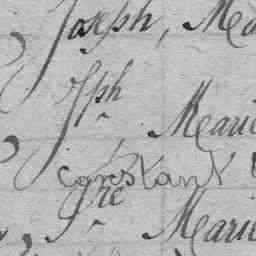 Joseph, Ma
Jph
, Marie
Constant
Jne Marie